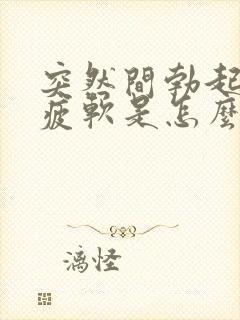 突然間勃起
疲軟是怎麼
漓怪